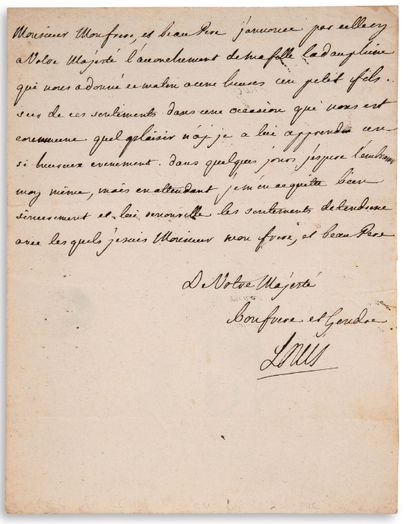 Monsieur Mon frere, et beau Pere j'annonce par celle cy
a Votre Majesté l'acouchement de ma fille la dauphine
qui nous a donné ce matin a onze heures un petit fils.
sur de ces sentements dans une occasion qui nous est
commune quel plaisir n'ai je a lui apprendre un
si heureux evenement. dans quelques jours j'espere l'embrasser
moy même, mais en attendant je m'en acquitte bien
sincerement et lui renouvelle les sentements de tendresse
avec les quels je suis Monsieur mon frere, et beau Pere
De Votre Majesté
bon frere et Gendre
Louis